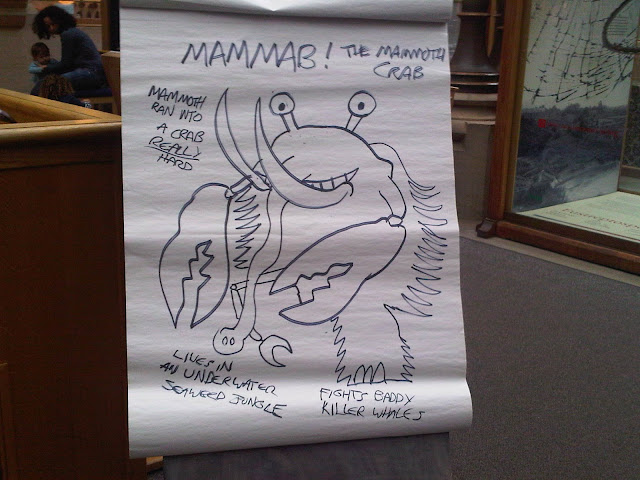 MAMMAB! THE MAMMOTH
CRAB
MAMMOTH
RAN INTO
A CRAB
REALLY
HARD
LIVES IN
AN UNDERWATER
SEAWEED JUNGLE
FIGHTS BADDY
KILLER WHALES